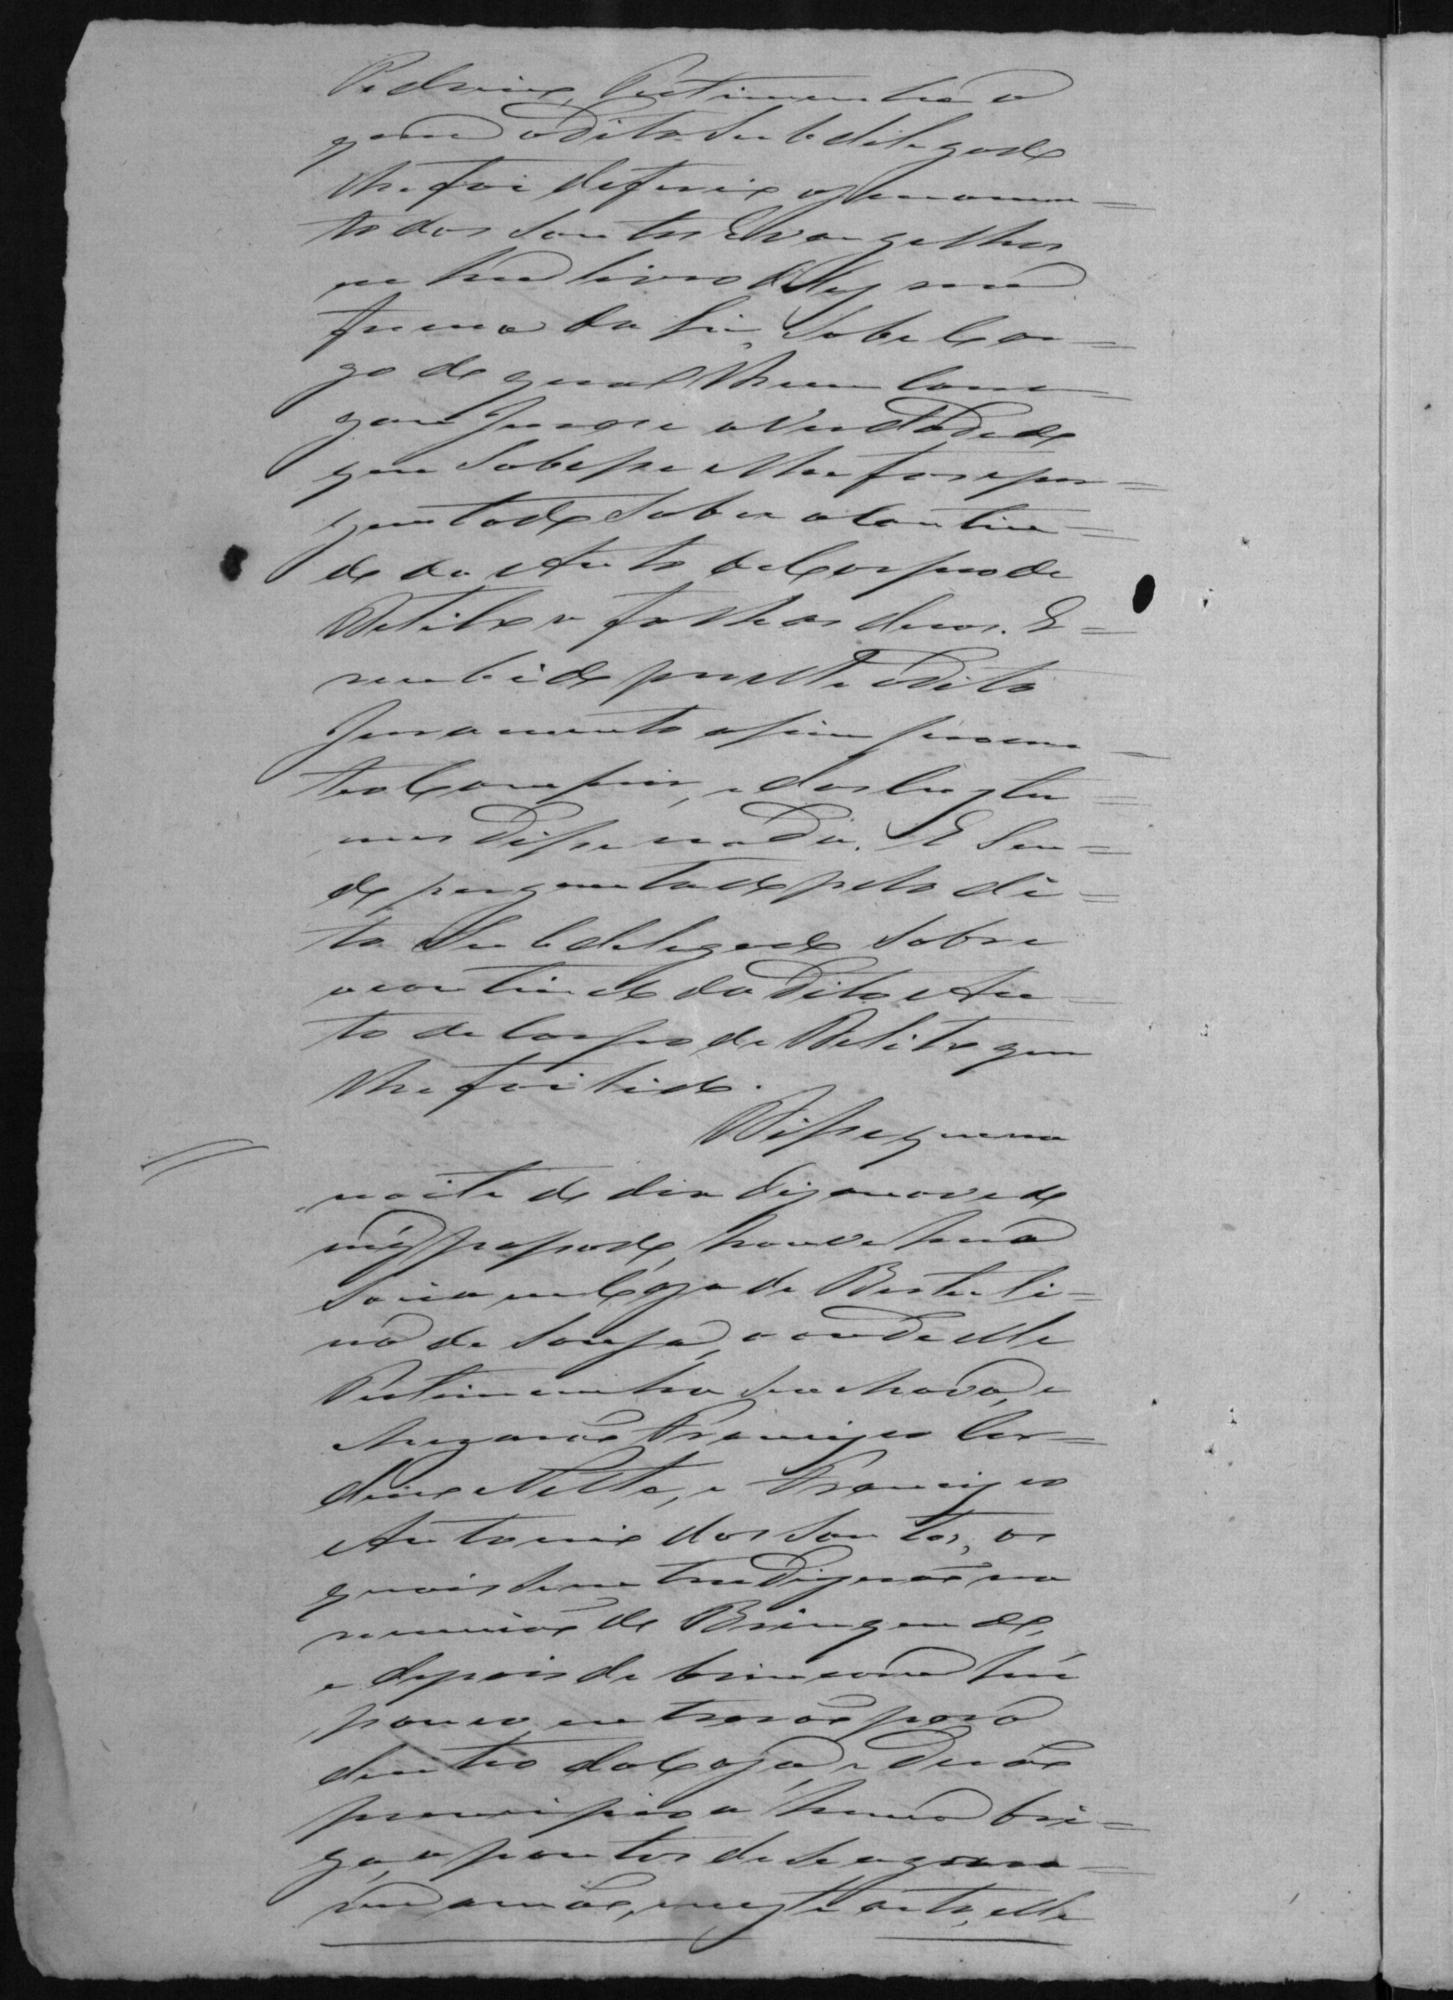 Padrinho, Testimunha a
quem o dito Subdelegado
lhe foi deferio o Juramen=
to dos Santos Evangelhos
em hum livro delles em
forma da Lei, sobe Car=
go de qual lhe encarre-
gou Jurase a verdade do
que sobesse e lhe fose per=
guntado sobre o Contiu=
do do Auto de Corpo de
Delito a folhas duas. E=
recebido por elle o dito
Juramento assim prome-
teo Comprir, e dos Custu=
mes disse nada. E Sen=
do perguntado pelo di=
to Subdelegado sobre
o contiudo do dito Au-
to de Corpo de Delito que
lhe foi lido.
Disse que na
noite do dia dizanove do
mez passado, houve huma
 em Caza de Bertuli=
no de Souza, aonde elle
Testimunha se achava, e
chegarão Francisco Cor=
deiro Netto, e Francisco
Antonio dos Santos, os
quais se introdizerão na
reunião do Brinquedo,
e depois de brincarem hú
pouco, entrarão para
dentro da Caza, e derão
principio a huma bri=
ga, a pontos de se agarra=
rem a mãos, neste acto, elle